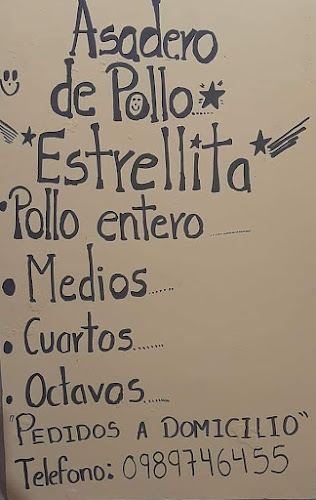 Asadero
de Pollo
"Estrellita"
• Pollo entero ......
• Medios......
• Cuartos......
• Octavos.....
"PEDIDOS A DOMICILIO"
Telefono: 0989746455